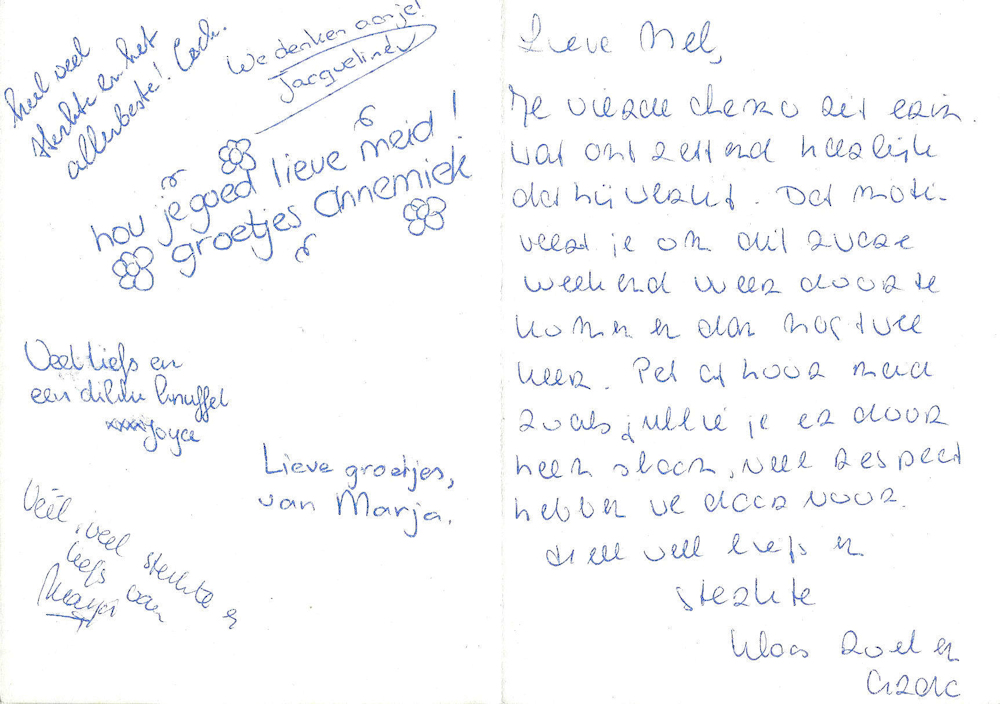 heel veel
sterkte en het
allerbeste! Coch.
We denken aan je!
Jacqueline
hou je goed lieve meid!
groetjes Annemiek
Veel liefs en
een dikke knuffel
xxxx Joyce
Lieve groetjes,
van Marja.
Veel, veel sterkte &
liefs van
Lieve Mel,
Je vierde chemo zit erin.
Wat ontzettend heerlijk
dat hij werkt. Dat moti-
veert je om dit zware
weekend weer door te
komen en dan nog twee
keer. Pet af hoor meid
zoals jullie je er door
heen slaan, veel respect
hebben we daar voor.
Heel veel liefs en
sterkte
Klaas